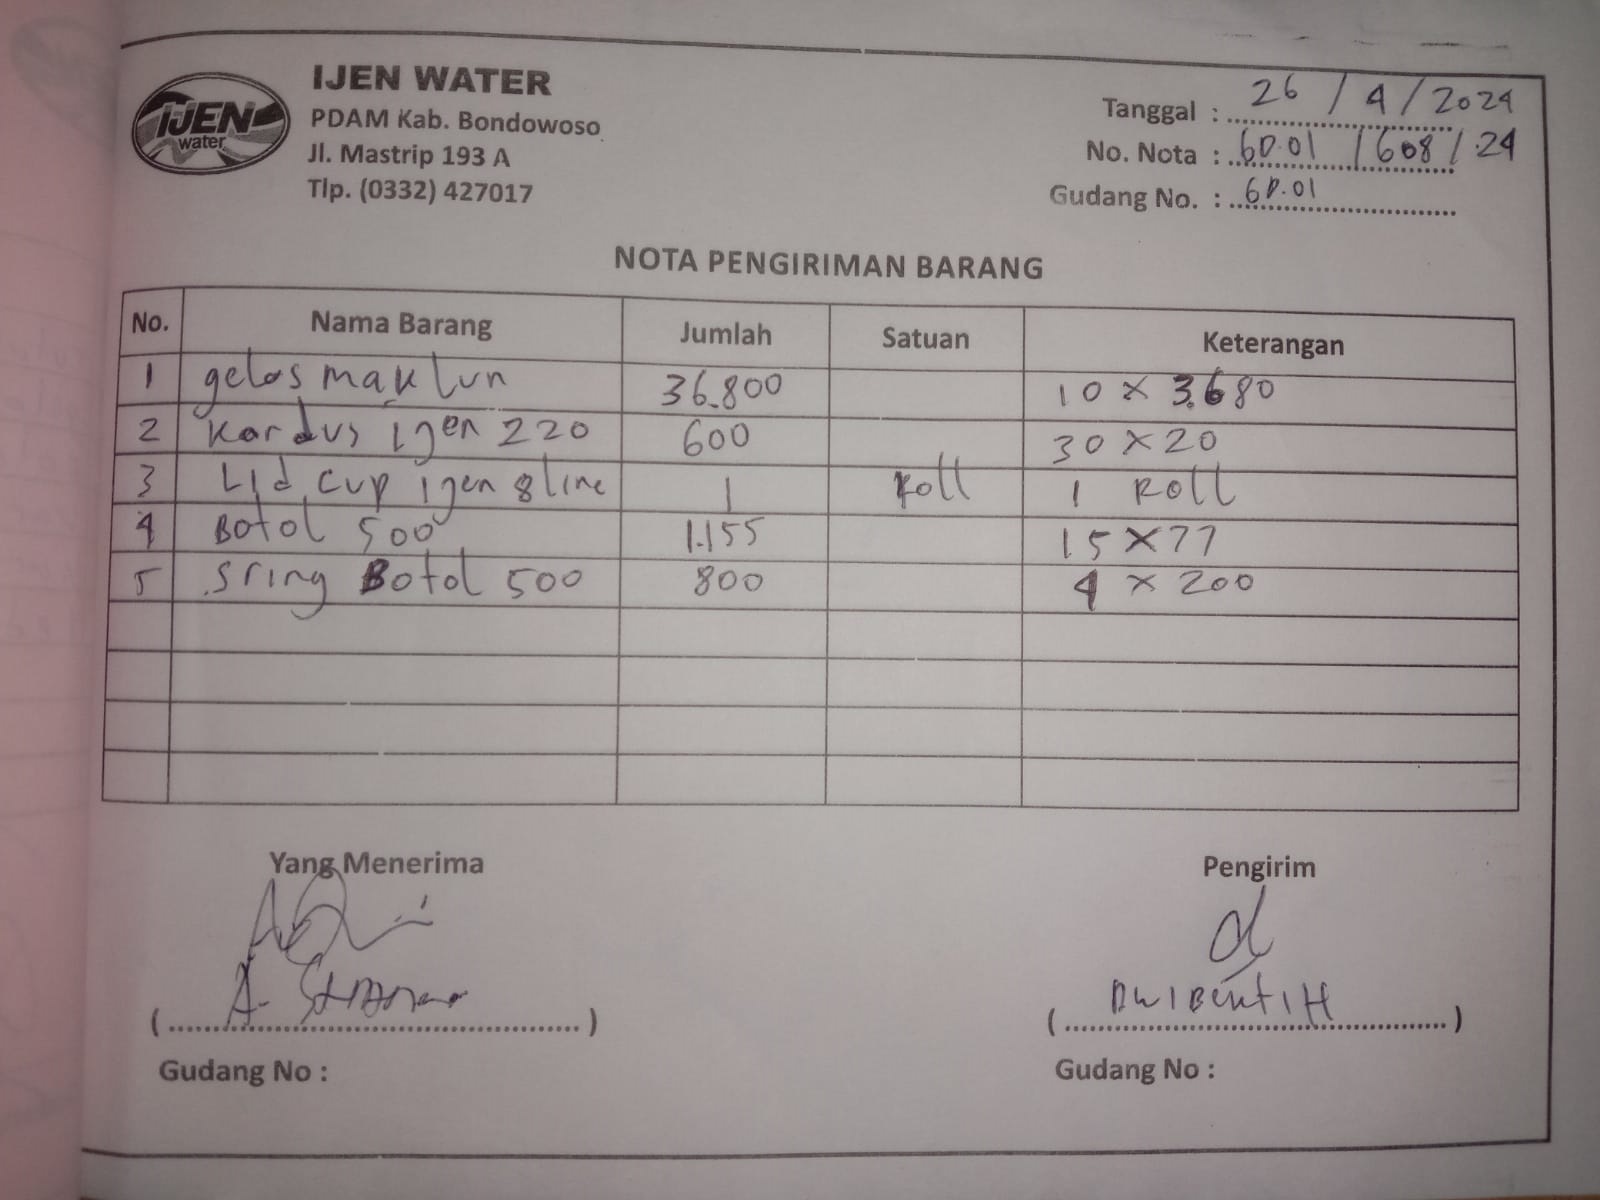 IJEN WATER
IJEN
water
PDAM Kab. Bondowoso
Jl. Mastrip 193 A
Tlp. (0332) 427017
Tanggal : 26 / 4 / 2024
No. Nota : GD.01 / 608 / 24
Gudang No. : GD.01
NOTA PENGIRIMAN BARANG
No. Nama Barang Jumlah Satuan Keterangan
1 gelas maklun 36.800 10 x 3.680
2 Kardus ijen 220 600 30 x 20
3 Lid cup ijen 8 line 1 Roll 1 Roll
4 Botol 500 1.155 15 x 77
5 Sring Botol 500 800 4 x 200
Yang Menerima Pengirim
( A. ) ( )
Gudang No : Gudang No :